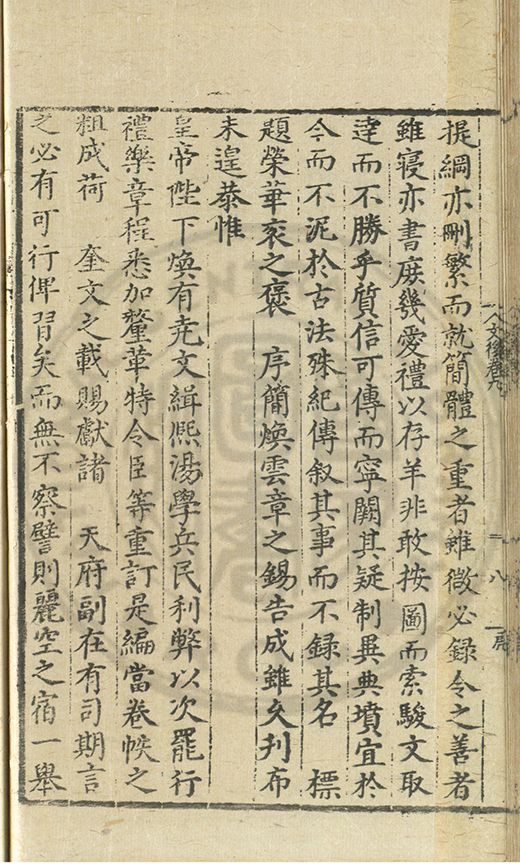 提綱亦刪繁而就簡體之重者雖微必録令之善者
雖寢亦書庶幾愛禮以存羊非敢按圖而索駿文取
達而不勝乎質信可傳而寧闕其疑制異典墳宜於
今而不泥於古法殊紀傳叙其事而不録其名 標
題榮華衮之褒 序簡煥雲章之錫告成雖久刋布
未遑恭惟
皇帝陛下煥有堯文緝熙湯學兵民利弊以次罷行
禮樂章程悉加釐革特令臣等重訂是編當卷帙之
粗成荷 奎文之載賜獻諸 天府副在有司期言
之必有可行俾習矣而無不察譬則麗空之宿一舉
八